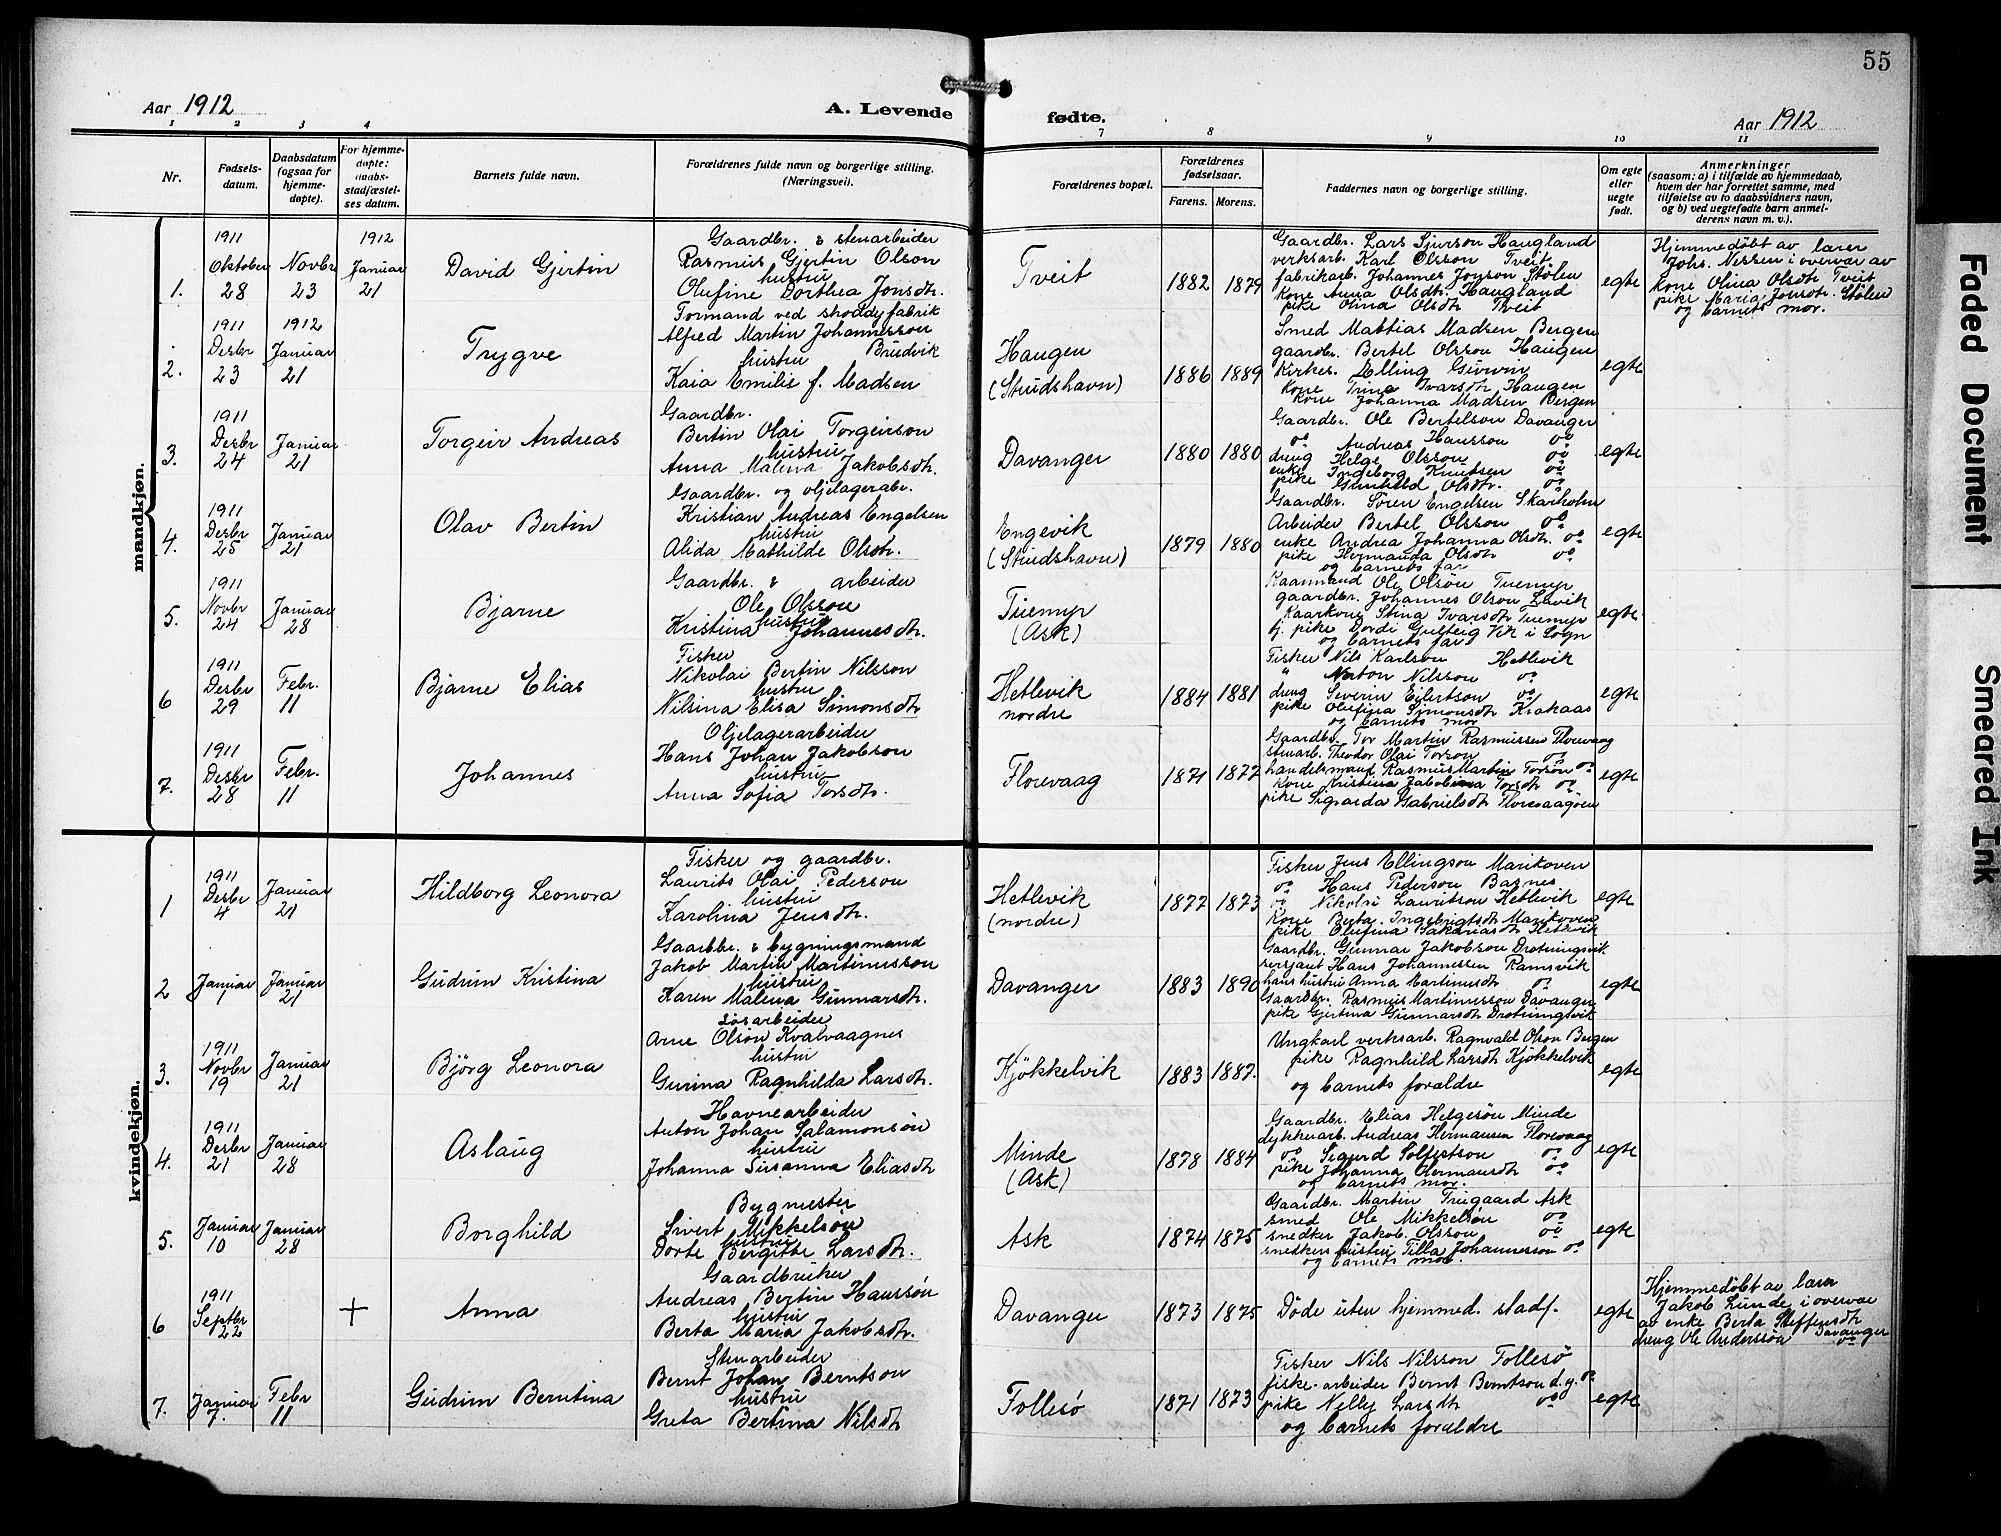 55
Aar 1912
A. Levende fødte.
Aar 1912
1 2 3 4 7 8 9 10 11
Nr.
Fødsels-
datum.
Daabsdatum
(ogsaa for
hjemme-
døpte).
For hjemme-
døpte:
daabs-
stadfæstel-
ses datum.
Barnets fulde navn.
Forældrenes fulde navn og borgerlige stilling.
(Næringsvei).
Forældrenes bopæl.
Forældrenes
fødselsaar.
Farens. Morens.
Faddernes navn og borgerlige stilling.
Om egte
eller
uegte
født.
Anmerkninger
(saasom: a) i tilfælde av hjemmedaab,
hvem der har forrettet samme, med
tilføielse av to daabsvidners navn,
og b) ved uegtefødte barn anmel-
derens navn m. v.).
mandkjøn.
1.
1911
Oktober
28
Novbr
23
1912
Januar
21
David Gjertin
Gaardbr. & stenarbeider
Rasmus Gjertin Olson
hustru
Olufine Dorthea Jonsdtr.
Tveit
1882 1879
Gaardbr. Lars Sjurson Haugland
verksarb. Karl Olsson Tveit
fabrikarb. Johannes Jonson Stølen
kone Anna Olsdtr. Haugland
pike Olina Olsdtr Tveit
egte
Hjemmedøbt av lærer
Johs. Nessen i overvær av
kone Olina Olsdtr Tveit
pike Maria Jonsdtr. Stølen
og barnets mor.
2.
1911
Desbr
23
1912
Januar
21
Trygve
Formand ved shoddyfabrik
Alfred Martin Johannesson
hustru Brudvik
Kaia Emilie f. Madsen
Haugen
(Strudshavn)
1886 1889
Smed Mathias Madsen Bergen
gaardbr. Bertel Olsson Haugen
Kirkes. Elling
kone Trine Ivarsdtr Haugen
kone Johanna Madsen Bergen
egte
3.
1911
Desbr
24
Januar
21
Torgeir Andreas
Gaardbr.
Bertin Olai Torgeirson
hustru
Anna Malena Jakobsdtr.
Davanger
1880 1880
Gaardbr. Ole Bertelson Davanger
do Andreas Hansson do
dreng Helge Olsson do
enke Ingeborg Knutsen do
pike Gunhild Olsdtr. do
egte
4.
1911
Desbr
25
Januar
21
Olav Bertin
Gaardbr. og oljelagerabr.
Kristian Andreas Engelsen
hustru
Alida Mathilde Olsdtr.
Engevik
(Strudshavn)
1879 1880
Gaardbr. Søren Engelsen Skarholm
Arbeider Bertel Olsson do
enke Andrea Johanna Olsdtr. do
pike Hermanda Olsdtr do
og barnets far
egte
5.
1911
Novbr
24
Januar
28
Bjarne
Gaardbr. & arbeider
Ole Olsson
hustru
Kristina Johannesdtr.
Tuemyr
(Ask)
Kaarmand Ole Olson Tuemyr
gaardbr. Johannes Olson Lavik
Kaarkone Stina Ivarsdtr Tuemyr
tj. pike Dordi Vik i Sogn
og barnets far
egte
6
1911
Desbr
29
Febr.
11
Bjarne Elias
Fisker
Nikolai Bertin Nilsson
hustru
Nilsina Elisa Simonsdtr
Hetlevik
nordre
1884 1881
Fisker Nils Karlson Hetlevik
" Nilsson do
dreng Severin Eilertson do
pike Olufina Simonsdtr Krakaas
og barnets mor
egte
7.
1911
Desbr
28
Febr.
11
Johannes
Oljelagerarbeider
Hans Johan Jakobson
hustru
Anna Sofia Torsdtr.
Florevaag
1871 1872
Gaardbr. Tor Martin Rasmussen Florevaag
stenarb. Theodor Olai Torson do
handelsmand Rasmus Martin Torson do
kone Kristina Jakobina Torsdtr do
pike Sigvarda Gabrielsdtr Florevaagøen
egte
kvindekjøn.
1
1911
Desbr
4
Januar
21
Hildborg Leonora
Fisker og gaardbr.
Laurits Olai Pederson
hustru
Karolina Jensdtr.
Hetlevik
(nordre)
1877 1873
Fisker Jens Ellingson Marikoven
do Hans Pederson Barnes
do Nikolai Lauritson Hetlevik
kone Berta Ingebrigtsdtr Marikoven
pike Olufina Sakariasdtr Hetlevik
egte
2
Januar
1
Januar
21
Gudrun Kristina
Gaardbr. & bygningsmand
Jakob Martin Martinusson
hustru
Karen Malena Gunnarsdtr.
Davanger
1883 1890
Gaardbr. Gunnar Jakobson Drotningsvik
sersjant Hans Johannessen Ramsvik
hans hustru Anna Martinusdtr do
Gaardbr. Rasmus Martinusson Davanger
pike Gjertina Gunnarsdtr Drotningsvik
egte
3.
1911
Novbr
19
Januar
21
Bjørg Leonora
Løsarbeider
Arne Olson Kvalvaagnes
hustru
Gurina Ragnhilda Larsdtr.
Kjøkkelvik
1883 1887.
Ungkarl verksarb. Ragnvald Olson Bergen
pike Ragnhild Larsdtr Kjøkkelvik
og barnets forældre
egte
4.
1911
Desbr
21
Januar
28
Aslaug
Havnearbeider
Anton Johan Salamonson
hustru
Johanna Susanna Eliasdtr
Minde
(Ask)
1878 1884
Gaardbr. Elias Helgesøn Minde
dykkerarb. Andreas Hermansen Florevaag
do Sigurd Solfestson do
pike Johanna Hermansdtr do
og barnets mor.
egte
5.
Januar
10
Januar
28
Borghild
Bygmester
Sivert Mikkelson
hustru
Dorte Birgitte Larsdtr.
Ask
1874 1875
Gaardbr. Martin Trugaard Ask
smed Ole Mikkelsøn do
snedker Jakob Olsson do
snedkers hustru Tilla Johannesson do
og barnets mor.
egte
6
1911
Septbr
22
+
Anna
Gaardbruker
Andreas Bertin Hansson
hustru
Berta Maria Jakobsdtr.
Davanger
1873 1875
Døde uten hjemmed. stadf.
egte
Hjemmedøbt av lærer
Jakob Lunde i overvær
av enke Berta Steffensdtr
dreng Ole Andersson Davanger
do
7.
Januar
7.
Febr
11
Gudrun Berntina
Stenarbeider
Bernt Johan Berntson
hustru
Greta Bertina Nilsdtr
Follesø
1871 1873
Fisker Nils Nilsson Follesø
fiske-arbeider Bernt Berntson d.y. do
pike Nelly Larsdtr do
og barnets forældre
egte
Faded Document
Smeared Ink